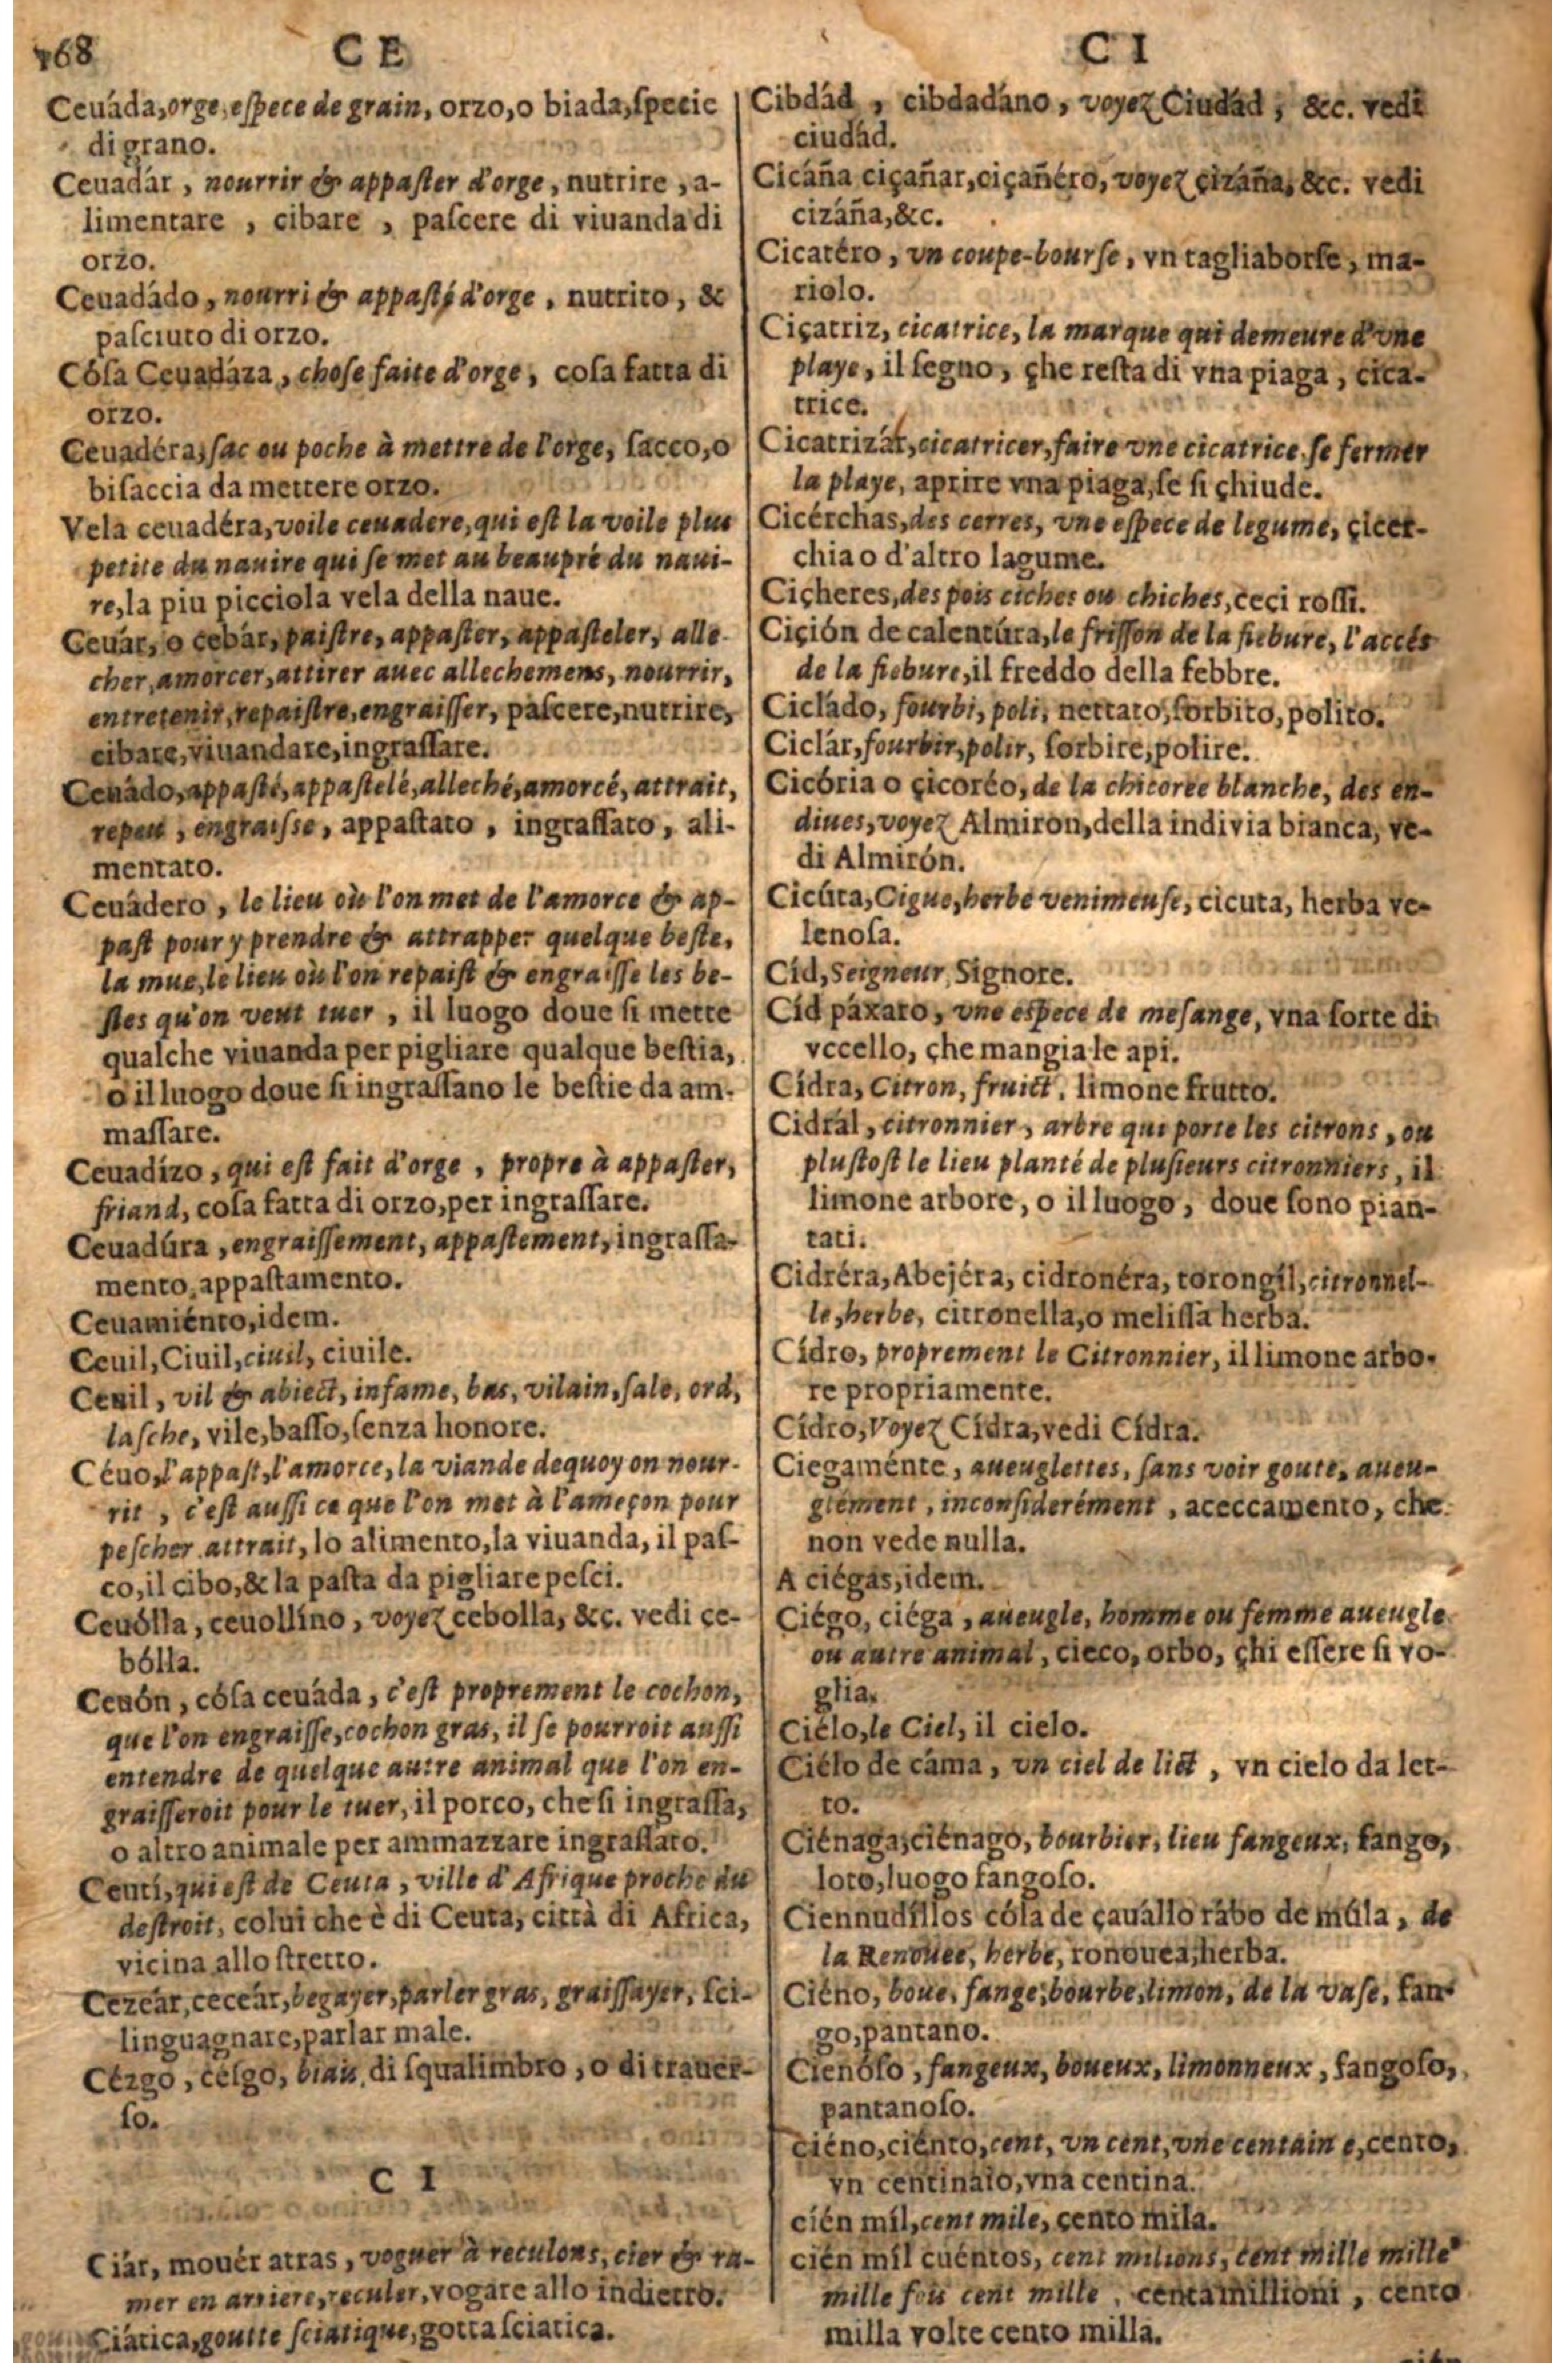 168 CE
Ceuáda, orge, espece de grain, orzo, o biada, specie
di grano.
Ceuadár, nourrir & appaster d'orge, nutrire, a-
limentare, cibare, pascere di viuanda di
orzo.
Ceuadádo, nourri & appasté d'orge, nutrito, &
pasciuto di orzo.
Cósa Ceuadáza, chose faite d'orge, cosa fatta di
orzo.
Ceuadéra, sac ou poche à mettre de l'orge, sacco, o
bisaccia da mettere orzo.
Vela ceuadéra, voile ceuadere, qui est la voile plus
petite du nauire qui se met au beaupré du naui-
re, la piu picciola vela della naue.
Ceuár, o cebár, paistre, appaster, appasteler, alle-
cher, amorcer, attirer auec allechemens, nourrir,
entretenir, repaistre, engraisser, pascere, nutrire,
cibare, viuandare, ingrassare.
Ceuádo, appasté, appastelé, alleché, amorcé, attrait,
repeu, engraisse, appastato, ingrassato, ali-
mentato.
Ceuádero, le lieu où l'on met de l'amorce & ap-
past pour y prendre & attrapper quelque beste,
la mue, le lieu où l'on repaist & engraisse les be-
stes qu'on veut tuer, il luogo doue si mette
qualche viuanda per pigliare qualque bestia,
o il luogo doue si ingrassano le bestie da am-
massare.
Ceuadízo, qui est fait d'orge, propre à appaster,
friand, cosa fatta di orzo, per ingrassare.
Ceuadúra, engraissement, appastement, ingrassa-
mento, appastamento.
Ceuamiénto, idem.
Ceuil, Ciuil, ciuil, ciuile.
Ceuil, vil & abiect, infame, bas, vilain, sale, ord,
lasche, vile, basso, senza honore.
Céuo, l'appast, l'amorce, la viande dequoy on nour-
rit, c'est aussi ce que l'on met à l'ameçon pour
pescher attrait, lo alimento, la viuanda, il pas-
co, il cibo, & la pasta da pigliare pesci.
Ceuólla, ceuollíno, voyez cebolla, &c. vedi ce-
bólla.
Ceuón, cósa ceuáda, c'est proprement le cochon,
que l'on engraisse, cochon gras, il se pourroit aussi
entendre de quelque autre animal que l'on en-
graisseroit pour le tuer, il porco, che si ingrassa,
o altro animale per ammazzare ingrassato.
Ceutí, qui est de Ceuta, ville d'Afrique proche du
destroit, colui che è di Ceuta, città di Africa,
vicina allo stretto.
Cezeár, ceceár, begayer, parler gras, graissayer, sci-
linguagnare, parlar male.
Cézgo, cesgo, biais, di squalimbro, o di trauer-
so.
CI
Ciár, mouér atras, voguer à reculons, cier & ra-
mer en arriere, reculer, vogare allo indietro.
Ciática, goutte sciatique, gotta sciatica.
CI
Cibdád, cibdadáno, voyez Ciudád, &c. vedi
ciudád.
Cicáña ciçañar, ciçañéro, voyez çizáña, &c. vedi
cizáña, &c.
Cicatéro, vn coupe-bourse, vn tagliaborse, ma-
riolo.
Ciçatriz, cicatrice, la marque qui demeure d'vne
playe, il segno, çhe resta di vna piaga, cica-
trice.
Cicatrizár, cicatricer, faire vne cicatrice, se fermer
la playe, aprire vna piaga, se si çhiude.
Cicérchas, des cerres, vne espece de legume, çicer-
chia o d'altro lagume.
Ciçheres, des pois ciches ou chiches, ceci rossi.
Ciçión de calentúra, le frisson de la fiebure, l'accés
de la fiebure, il freddo della febbre.
Cicládo, fourbi, poli, nettato, forbito, polito.
Ciclár, fourbir, polir, forbire, polire.
Cicória o çicoréo, de la chicoree blanche, des en-
diues, voyez Almiron, della indivia bianca, ve-
di Almirón.
Cicúta, Cigue, herbe venimeuse, cicuta, herba ve-
lenosa.
Cíd, Seigneur, Signore.
Cíd páxaro, vne espece de mesange, vna sorte di
vccello, çhe mangia le api.
Cídra, Citron, fruict, limone frutto.
Cidrál, citronnier, arbre qui porte les citrons, ou
plustost le lieu planté de plusieurs citronniers, il
limone arbore, o il luogo, doue sono pian-
tati.
Cidréra, Abejéra, cidronéra, torongíl, citronnel-
le, herbe, citronella, o melissa herba.
Cídro, proprement le Citronnier, il limone arbo-
re propriamente.
Cídro, Voyez Cídra, vedi Cídra.
Ciegaménte, aueuglettes, sans voir goute, aueu-
glément, inconsiderément, aceccamento, che
non vede nulla.
A ciégas, idem.
Ciégo, ciéga, aueugle, homme ou femme aueugle
ou autre animal, cieco, orbo, çhi essere si vo-
glia.
Ciélo, le Ciel, il cielo.
Ciélo de cáma, vn ciel de lict, vn cielo da let-
to.
Ciénaga, ciénago, bourbier, lieu fangeux, fango,
loto, luogo fangoso.
Ciennudíllos cóla de çauállo rábo de múla, de
la Renouee, herbe, ronouea, herba.
Ciéno, boue, fange, bourbe, limon, de la vase, fan-
go, pantano.
Cienóso, fangeux, boueux, limonneux, fangoso,
pantanoso.
ciéno, ciénto, cent, vn cent, vne centain e, cento,
vn centinaio, vna centina.
cién míl, cent mile, çento mila.
cién míl cuéntos, cent milions, cent mille mille
mille fois cent mille, centamillioni, cento
milla volte cento milla.